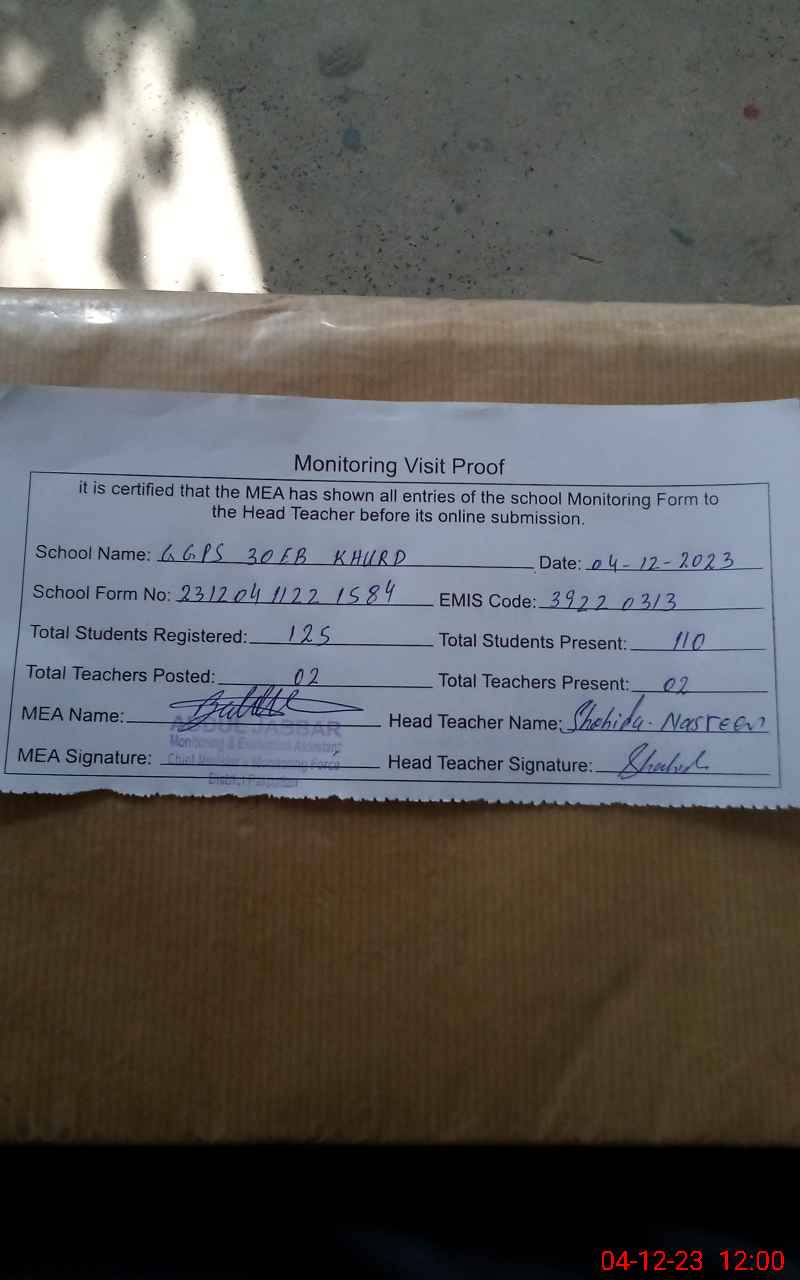 Monitoring Visit Proof
it is certified that the MEA has shown all entries of the school Monitoring Form to
the Head Teacher before its online submission.
School Name: GGPS 30EB KHURD Date: 04-12-2023
School Form No: 231204 1122 1584 EMIS Code: 3922 0313
Total Students Registered: 125 Total Students Present: 110
Total Teachers Posted: 02 Total Teachers Present: 02
MEA Name: Head Teacher Name: Shahida Nasreen
ABDUL JABBAR
Monitoring & Evaluation Assistant
MEA Signature: Head Teacher Signature: Shahid
Chief Minister's Monitoring Force
District Pakpattan
04-12-23 12:00